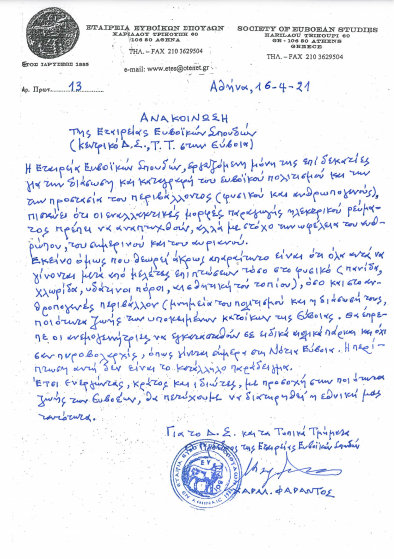 ΕΤΑΙΡΕΙΑ ΕΥΒΟΪΚΩΝ ΣΠΟΥΔΩΝ
ΧΑΡΙΛΑΟΥ ΤΡΙΚΟΥΠΗ 60
106 80 ΑΘΗΝΑ
ΤΗΛ. – FAX 210 3629504
SOCIETY OF EUBOEAN STUDIES
HARILAOU TRIKOUPI 60
GR - 106 80 ATHENS
GREECE
ΤΗΛ. – FAX 210 3629504
e-mail: www.etes@otenet.gr
ΕΤΟΣ ΙΔΡΥΣΕΩΣ 1935
Αρ. Πρωτ. 13
Αθήνα, 16-4-21
ΑΝΑΚΟΙΝΩΣΗ
Της Εταιρείας Ευβοϊκών Σπουδών
(κεντρικό Δ.Σ., Τ.Τ. στην Εύβοια)
Η Εταιρεία Ευβοϊκών Σπουδών, εργαζόμενη μόνη της επί δεκαετίες
για την διάσωση και καταγραφή του ευβοϊκού πολιτισμού και την
την προστασία του περιβάλλοντος (φυσικού και ανθρωπογενούς),
πιστεύει ότι οι εναλλακτικές μορφές παραγωγής ηλεκτρικού ρεύμα-
τος πρέπει να αναπτυχθούν, αλλά με στόχο την ωφέλεια του ανθ-
ρώπου, του σημερινού και του αυριανού.
Εκείνο όμως που θεωρεί άκρως απαραίτητο είναι ότι όλα αυτά να
γίνονται μετά από μελέτες επιπτώσεων τόσο στο φυσικό (πανίδα,
χλωρίδα, υδάτινοι πόροι, αισθητική του τοπίου), όσο και στο αν-
θρωπογενές περιβάλλον (μνημεία του πολιτισμού και η διάσωσή τους,
ποιότητα ζωής των υποκειμένων κατοίκων της Εύβοιας. Θα έπρε-
πε οι ανεμογεννήτριες να εγκατασταθούν σε ειδικά αιολικά πάρκα και όχι
σαν πυροβολαρχίες, όπως γίνεται σήμερα στη Νότια Εύβοια. Η περί-
πτωση αυτή δεν είναι το κατάλληλο παράδειγμα.
Έτσι ενεργώντας, κράτος και ιδιώτες, με προσοχή στην ποιότητα
ζωής των Ευβοέων, θα πετύχουμε να διατηρηθεί η εθνική μας
ταυτότητα.
Για το Δ.Σ. και τα Τοπικά Τμήματα
Ο Πρόεδρος της Εταιρείας Ευβοϊκών Σπουδών
ΧΑΡΑΛ. ΦΑΡΑΝΤΟΣ